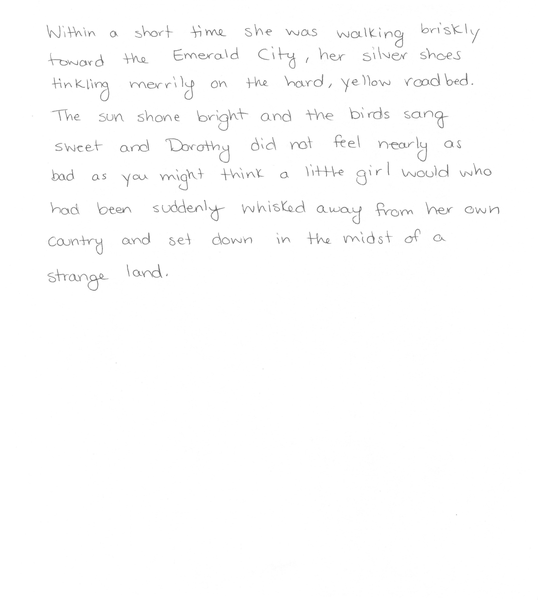 Within a short time she was walking briskly
toward the Emerald City, her silver shoes
tinkling merrily on the hard, yellow roadbed.
The sun shone bright and the birds sang
sweet and Dorothy did not feel nearly as
bad as you might think a little girl would who
had been suddenly whisked away from her own
country and set down in the midst of a
strange land.